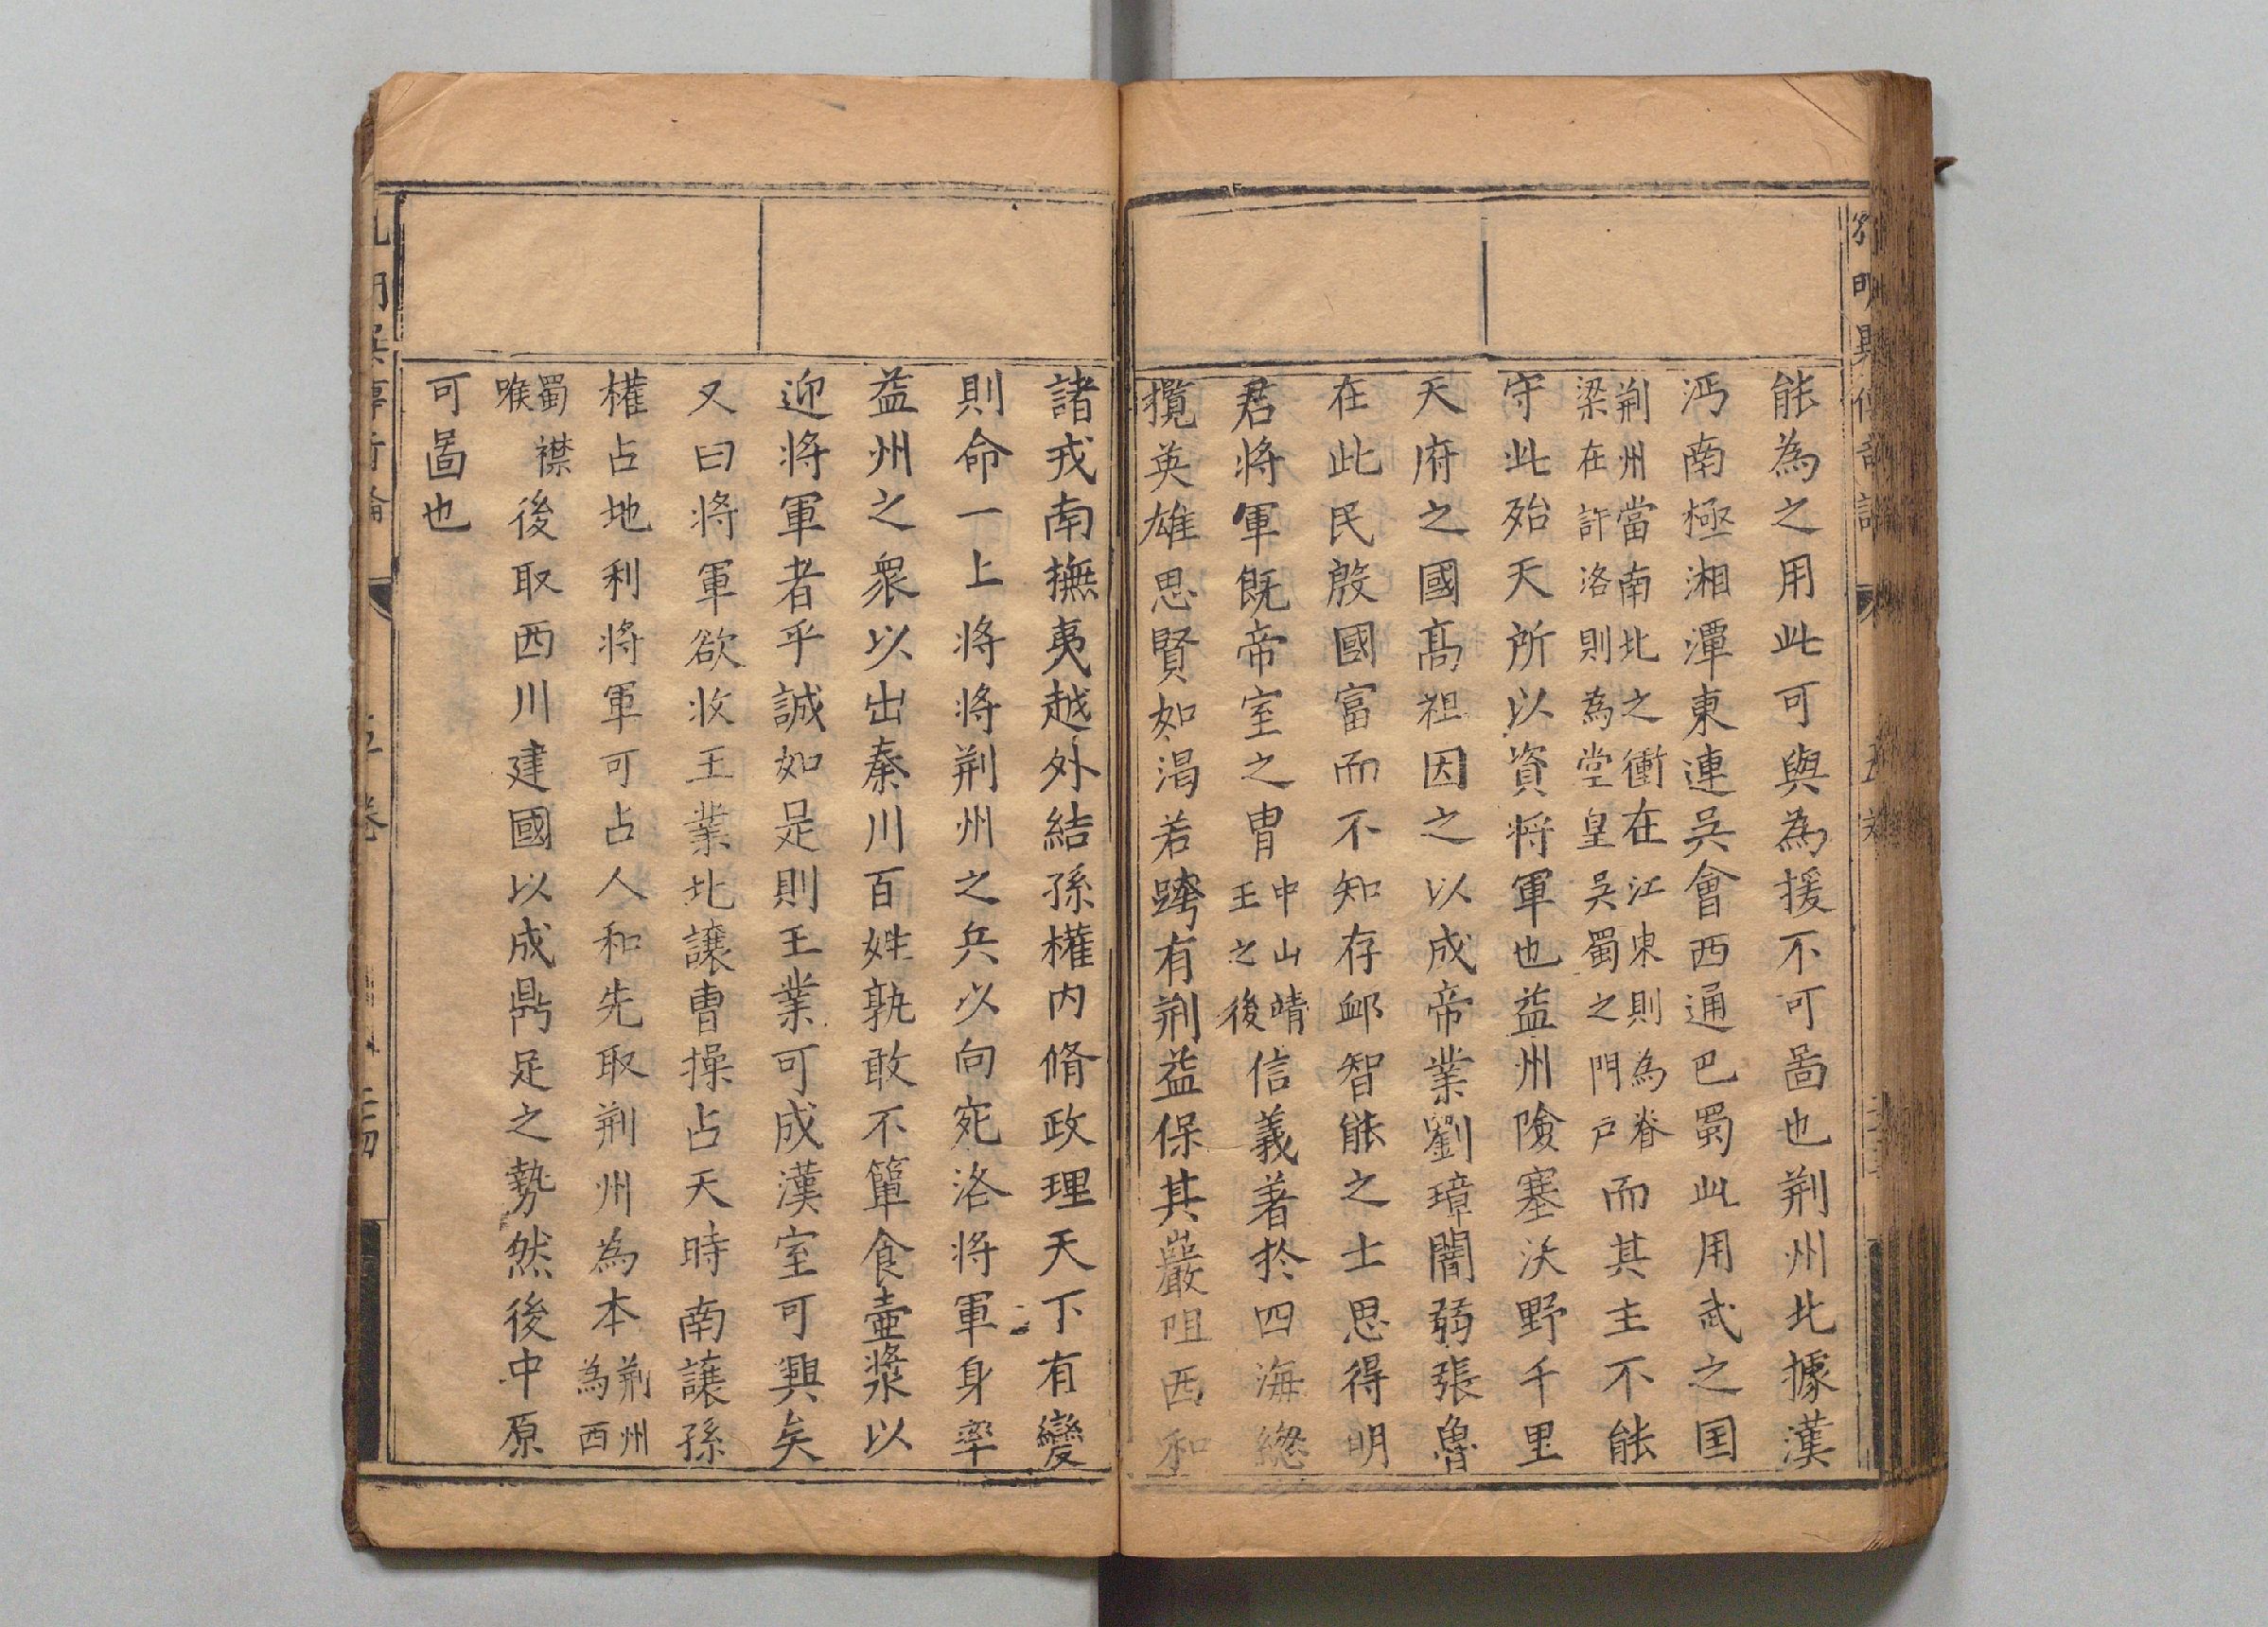 能為之用此可與為援不可啚也荆州北據漢
沔南極湘潭東連吳會西通巴蜀此用武之国
荆州當南北之衝在江東則為脊
梁在許洛則為堂皇吳蜀之門户
而其主不能
守此殆天所以資将軍也益州險塞沃野千里
天府之國髙祖因之以成帝業劉璋闇弱張魯
在此民殷國富而不知存邺智能之士思得明
君将軍旣帝室之冑
中山靖
王之後
信義著扵四海緫
攬英雄思賢如渴若跨有荆益保其巖咀西和
諸戎南撫夷越外結孫權内脩政理天下有變
則命一上将将荆州之兵以向宛洛将軍身率
益州之衆以出秦川百姓孰敢不簞食壷漿以
迎将軍者乎誠如是則王業可成漢室可興矣
又曰将軍欲收王業北讓曹操占天時南讓孫
權占地利将軍可占人和先取荆州為本
荆州
為西
蜀襟
喉
後取西川建國以成鼎足之勢然後中原
可啚也